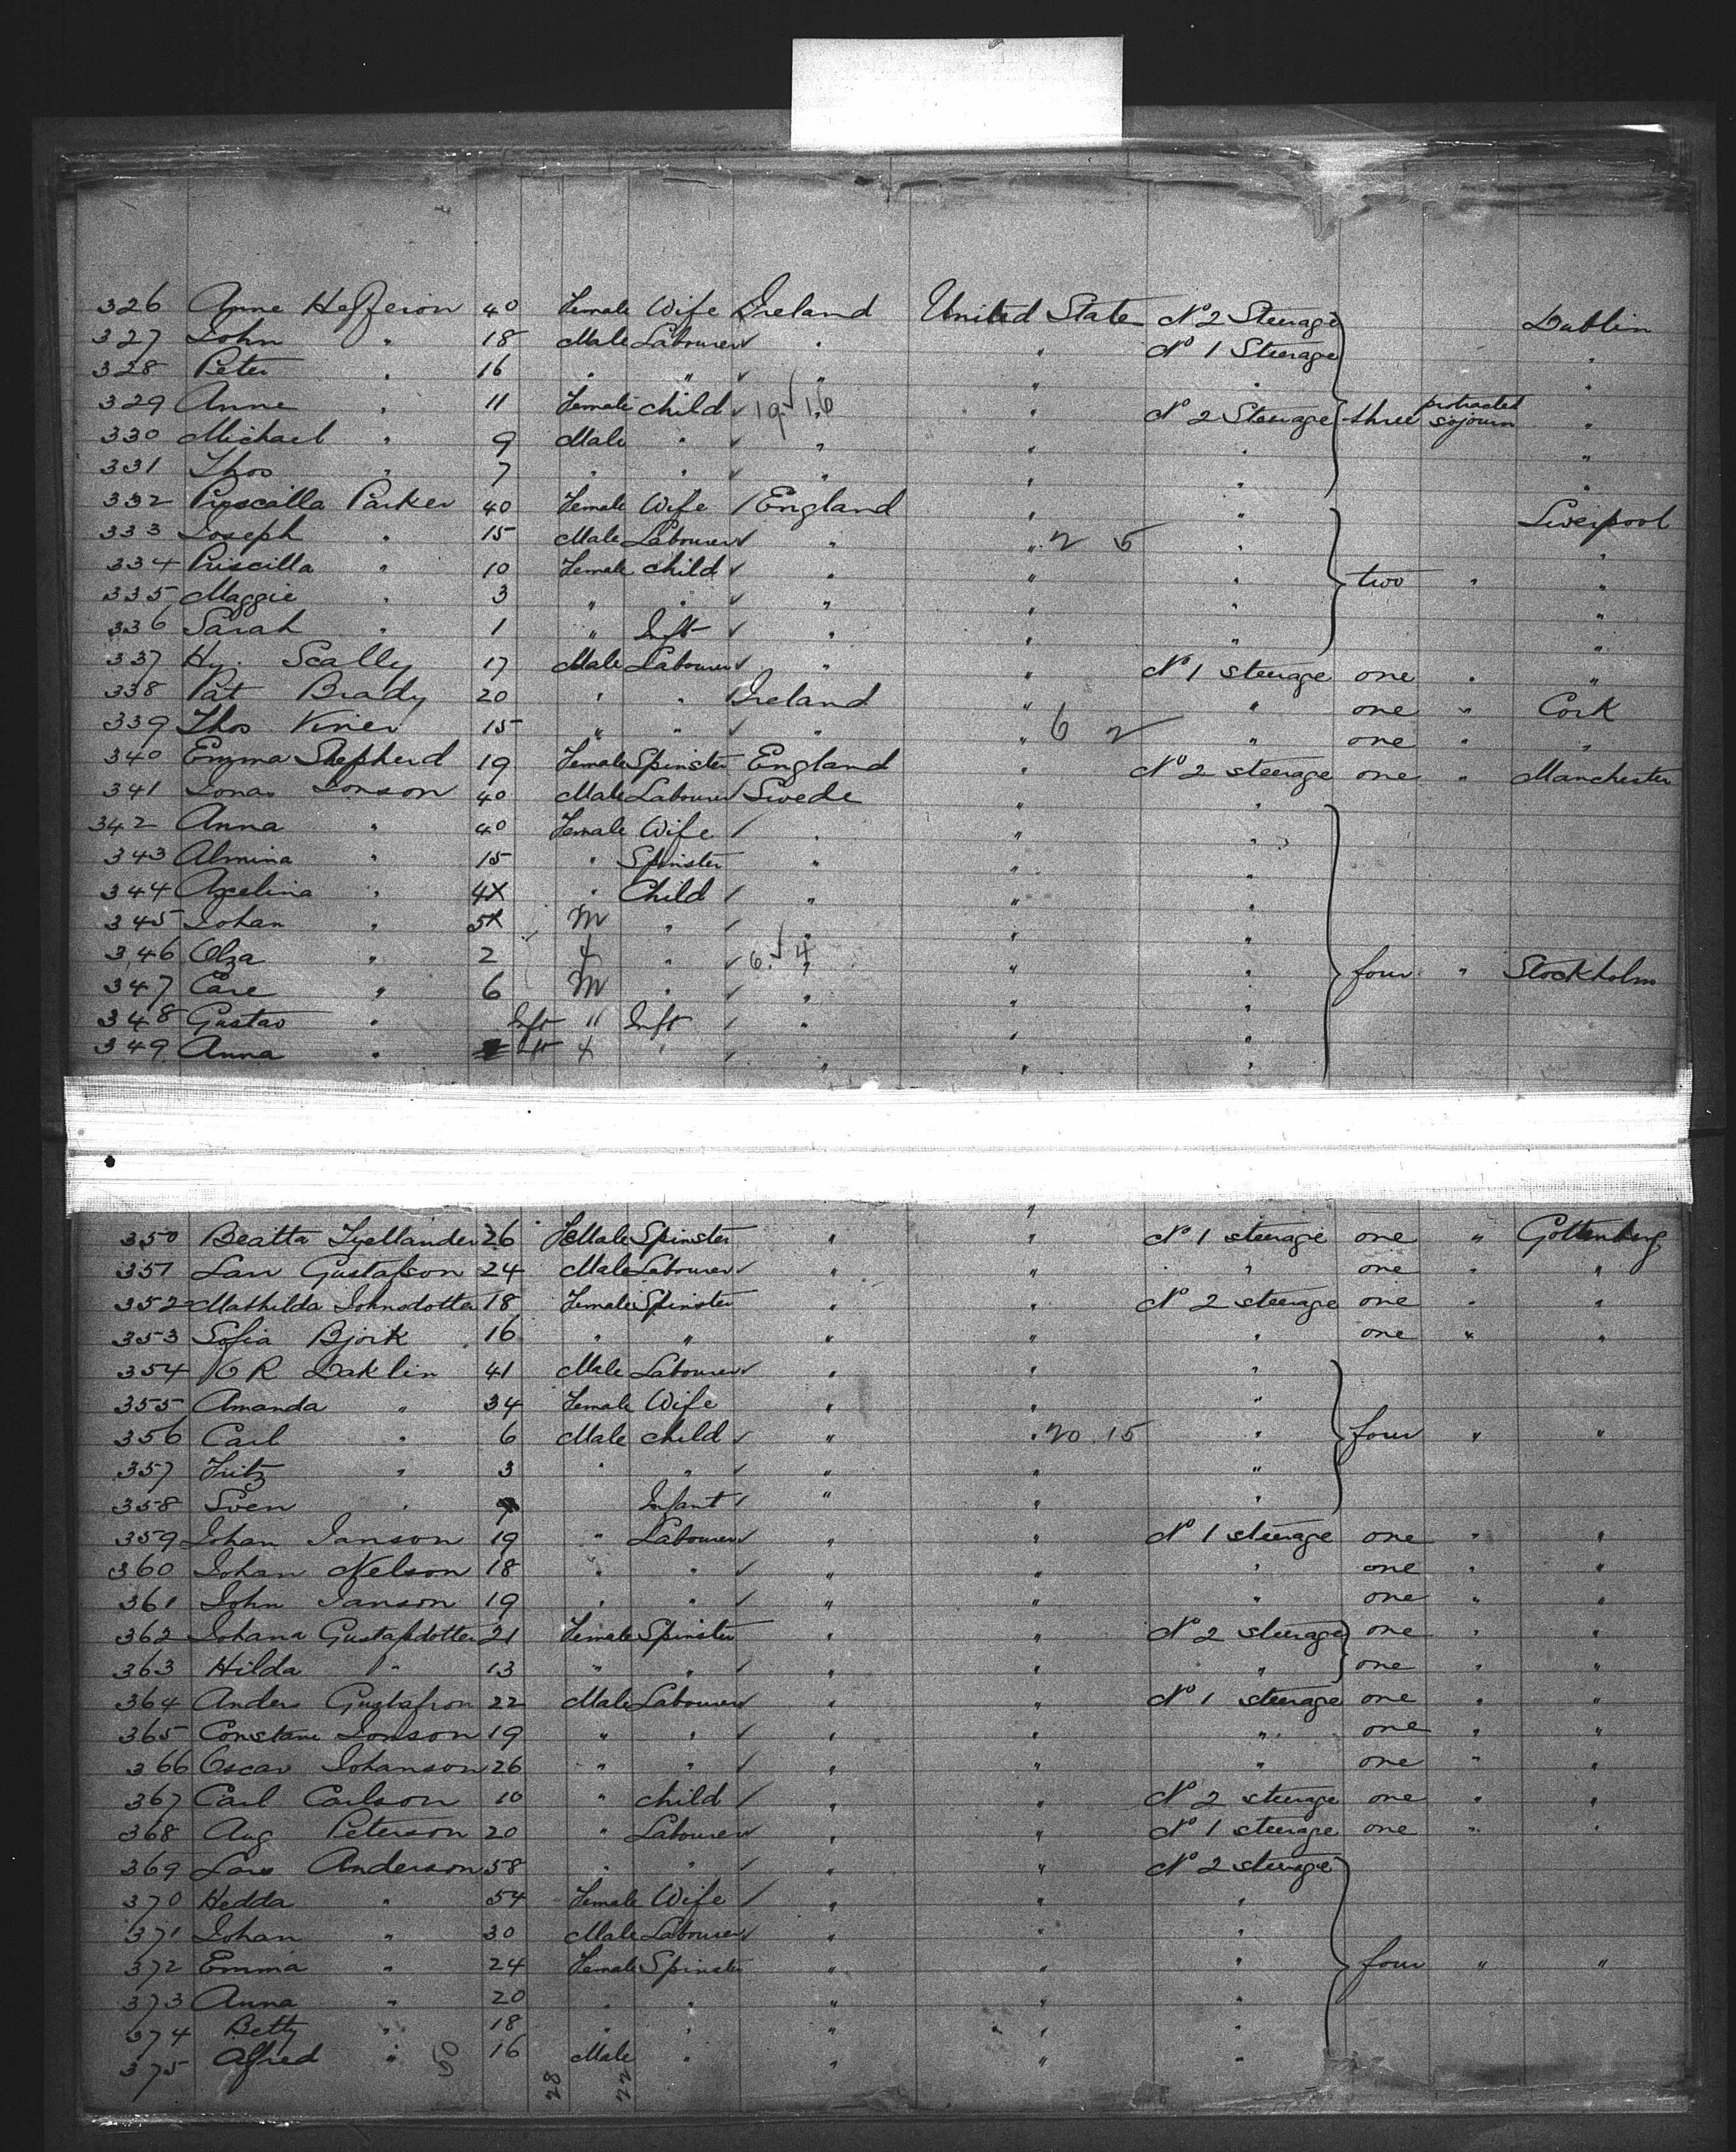 326 Anne Hefferon 40 Female Wife Ireland United State No 2 Steerage Dublin
327 John " 18 Male Labourer " " No 1 Steerage "
328 Peter " 16 " " " " " "
329 Anne " 11 Female child 19 16 " " No 2 Steerage three protracted sojourn "
330 Michael " 9 Male " " " " "
331 Thos " 7 " " " " " "
332 Priscalla Parker 40 Female Wife England " " Liverpool
333 Joseph " 15 Male Labourer " " 2 5 " "
334 Priscilla " 10 Female child " " " two " "
335 Maggie " 3 " " " " " "
336 Sarah " 1 " Inft " " " "
337 Hy. Scally 17 Male Labourer " " No 1 steerage one " "
338 Pat Brady 20 " " Ireland " " one " Cork
339 Thos 15 " " " " 6 2 " one " "
340 Emma Shepherd 19 Female Spinster England " No 2 steerage one " Manchester
341 Jonas Jonson 40 Male Labourer Swede " "
342 Anna " 40 Female Wife " " "
343 Almina " 15 " Spinster " " "
344 Axelina " 4X " Child " " "
345 Johan " 5X M " " " "
346 Olga " 2 f " 6 4 " " " four " Stockholm
347 Care " 6 M " " " "
348 Gustav " Inft " Inft " " "
349 Anna " Inft f " " " "
350 Beatta Tyellander 26 FeMale Spinster " " No 1 steerage one " Gottenberg
351 Lars Gustafson 24 Male Labourer " " " one " "
352 Mathilda Johnsdotter 18 Female Spinster " " No 2 steerage one " "
353 Sofia Bjork 16 " " " " " one " "
354 R Daklin 41 Male Labourer " " "
355 Amanda " 34 Female Wife " " "
356 Carl " 6 Male child " " 20 15 " four " "
357 Fritz " 3 " " " " "
358 Sven " Infant " " "
359 Johan Janson 19 " Labourer " " No 1 steerage one " "
360 Johan Nelson 18 " " " " " one " "
361 John Janson 19 " " " " " one " "
362 Johana Gustafsdotter 21 Female Spinster " " No 2 steerage one " "
363 Hilda " 13 " " " " " one " "
364 Anders Gustafson 22 Male Labourer " " No 1 steerage one " "
365 Jonson 19 " " " " " one " "
366 Oscar Johanson 26 " " " " " one " "
367 Carl Carlson 10 " child " " No 2 steerage one " "
368 Aug Peterson 20 " Labourer " " No 1 steerage one " "
369 Lars Anderson 58 " " " " No 2 steerage
370 Hedda " 54 Female Wife " " "
371 Johan " 30 Male Labourer " " "
372 Emma " 24 Female Spinster " " " four " "
373 Anna " 20 " " " " "
374 Betty " 18 " " " " "
375 Alfred " 50 16 Male " " " "
28 22